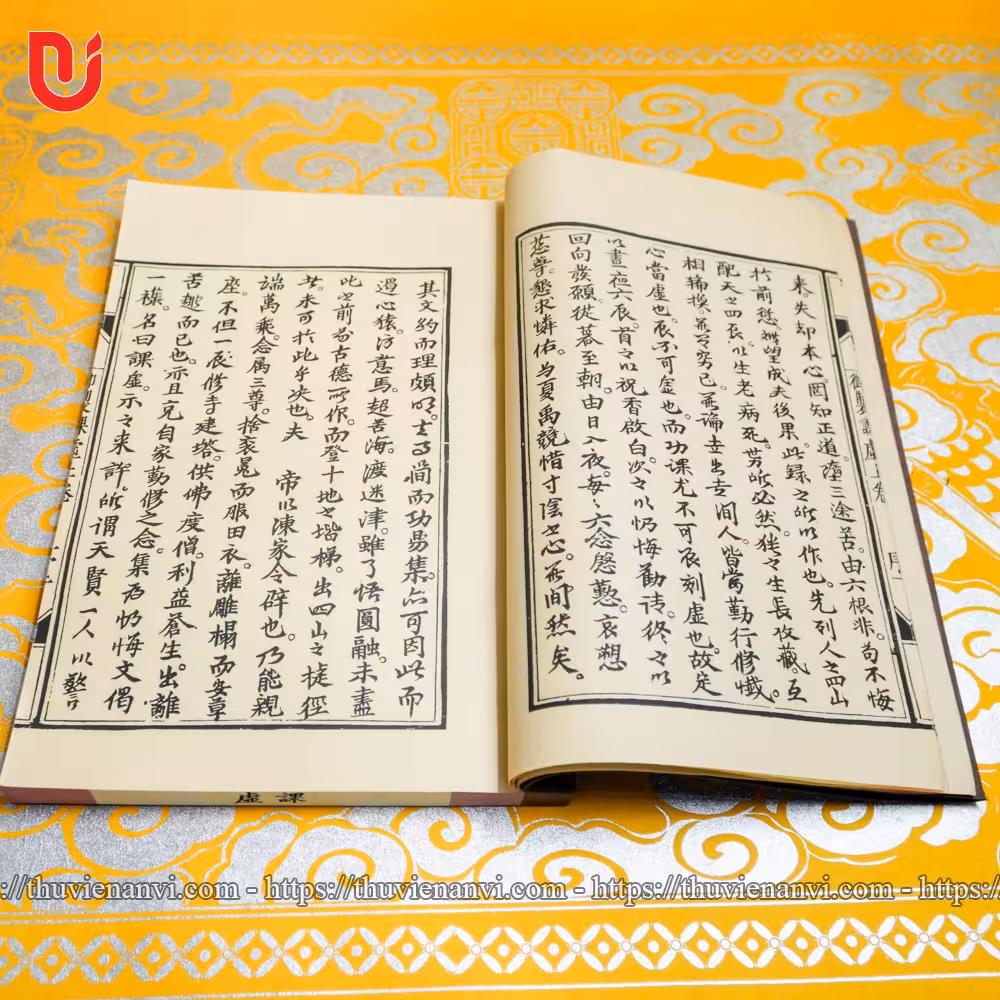 御製課虛上卷 序
來。失却本心。罔知正道。墮三途苦。由六根非。苟不悔
於前愆。望成夫後果。此錄之所以作也。先列人之四山
配天之四辰。以生老病死。所必然。之生長收藏。互
相換。無窮已。無論在世出世间人。皆當勤行修懺。
心當虛也。辰不可虛也。而功課尤不可辰刻虛也。故定
以晝夜六辰。首之以祝香啟白。次之以忏悔勸请。終之以
回向發願。從暮至朝。由日入夜。每々六念慇懃。哀想
慈尊。懇求憐佑。与夏禹競惜寸陰之心。無间然矣。
其文約而理頗明。士簡而功易集。亦可因此而
遏心猿。防意馬。超苦海。渡迷津。雖了悟圓融。未盡
此之前古德所作。而登十地之堦梯。出四山之捷徑
未可於此乎决也。夫 帝以陳家令辟也。乃能親
端萬乘。念属三尊。捨袞冕而服田衣。離雕榻而安草
座。不但一辰修寺建塔。供佛度僧。利益蒼生。出離
苦趣而已也。亦且充自家勤修之念。集為忏悔文偈
一襍。名曰課虛。示之来許。所謂天賢一人以警
課虛
https://thuvienanvi.com - https://thuvienanvi.com - https://thuvienanvi.com